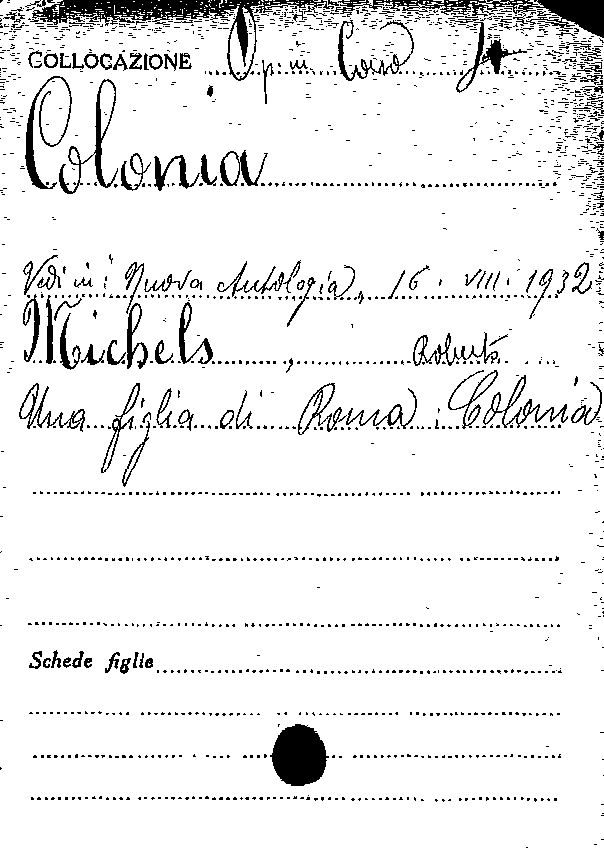 COLLOCAZIONE Op. in Corso
Colonia
Vedi in: Nuova Antologia, 16. VIII. 1932
Michels, Roberto
Una figlia di Roma: Colonia
Schede figlie